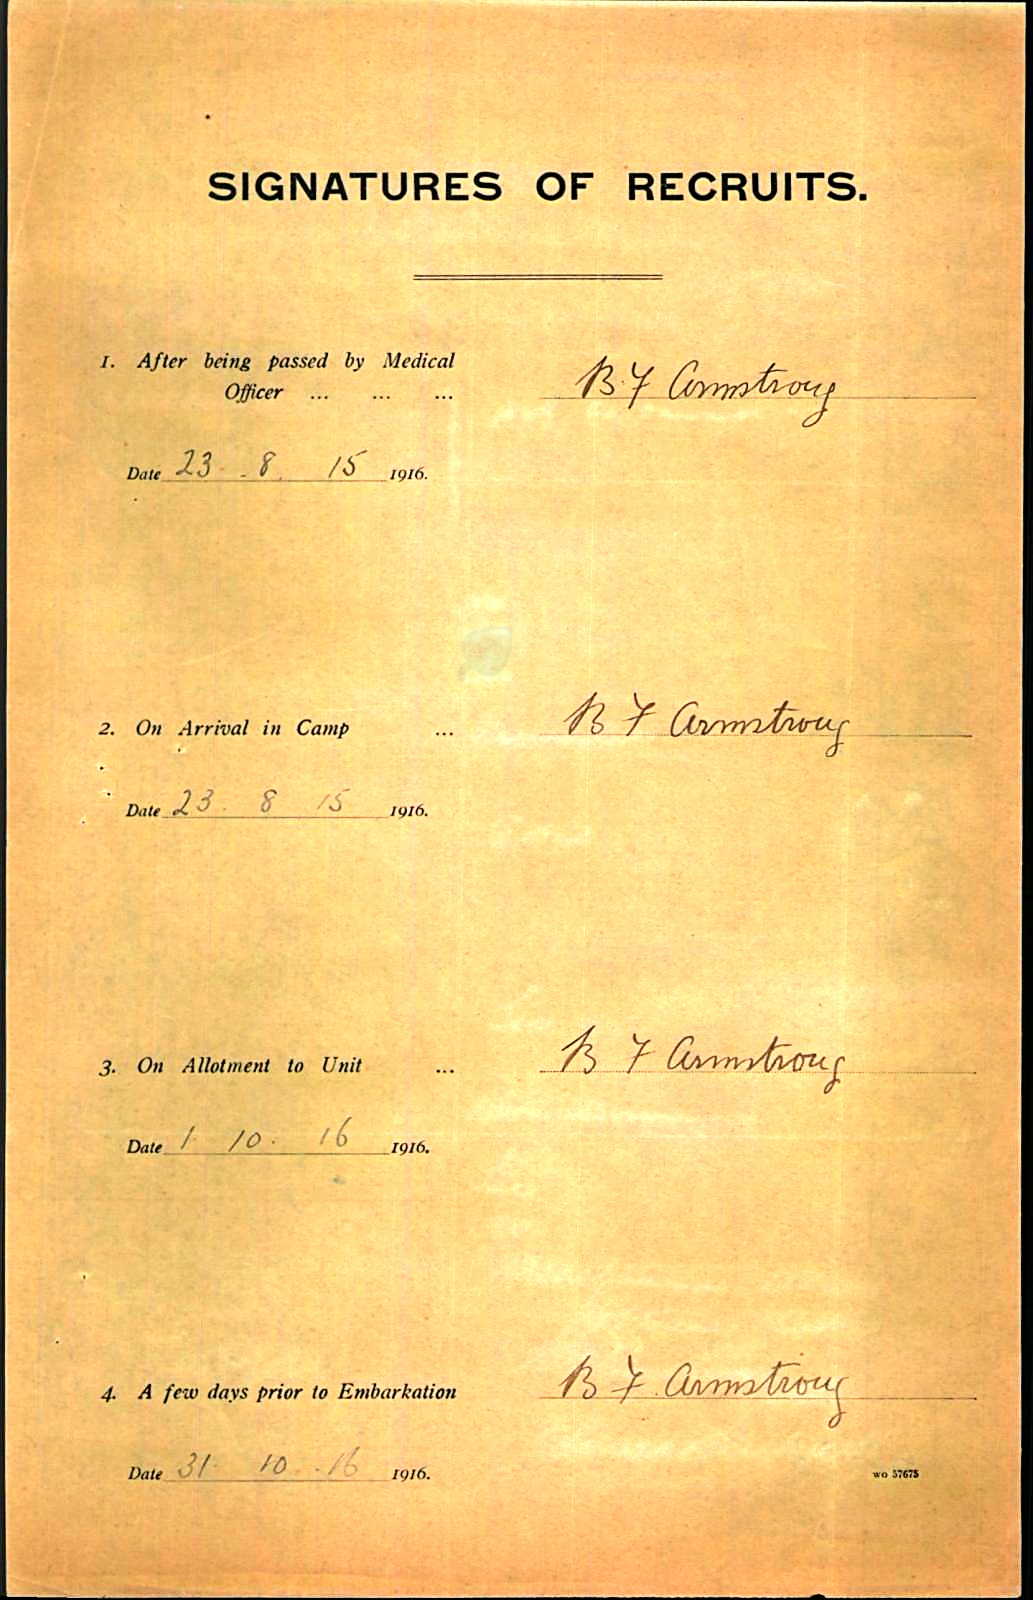 SIGNATURES OF RECRUITS.
1. After being passed by Medical
Officer ... ... ... B. F Armstrong
Date 23 . 8 . 15 1916.
2. On Arrival in Camp ... B F Armstrong
Date 23 . 8 15 1916.
3. On Allotment to Unit ... B F Armstrong
Date 1 . 10 . 16 1916.
4. A few days prior to Embarkation B F Armstrong
Date 31 . 10 . 16 1916.
WO 57675